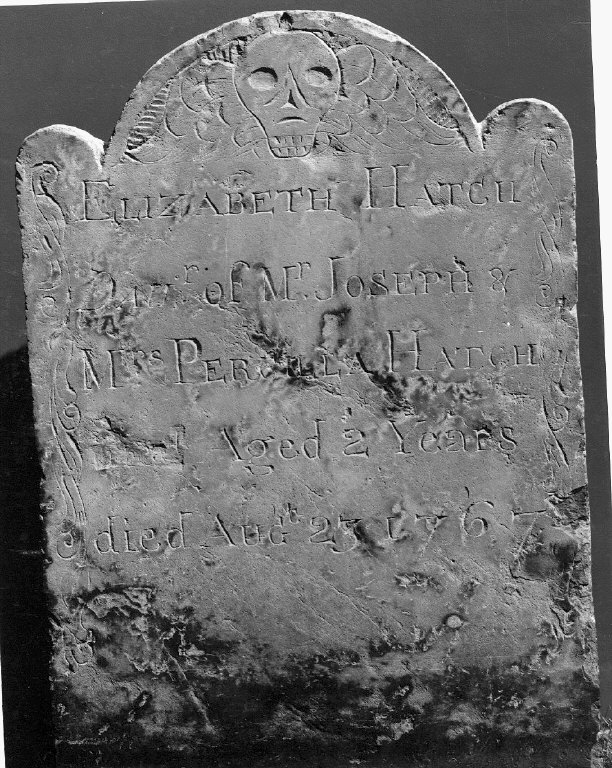 ELIZABETH HATCH
Dau.r of Mr. JOSEPH &
Mrs PERCILLA HATCH
Aged 2 Years
died Augst 23 1767